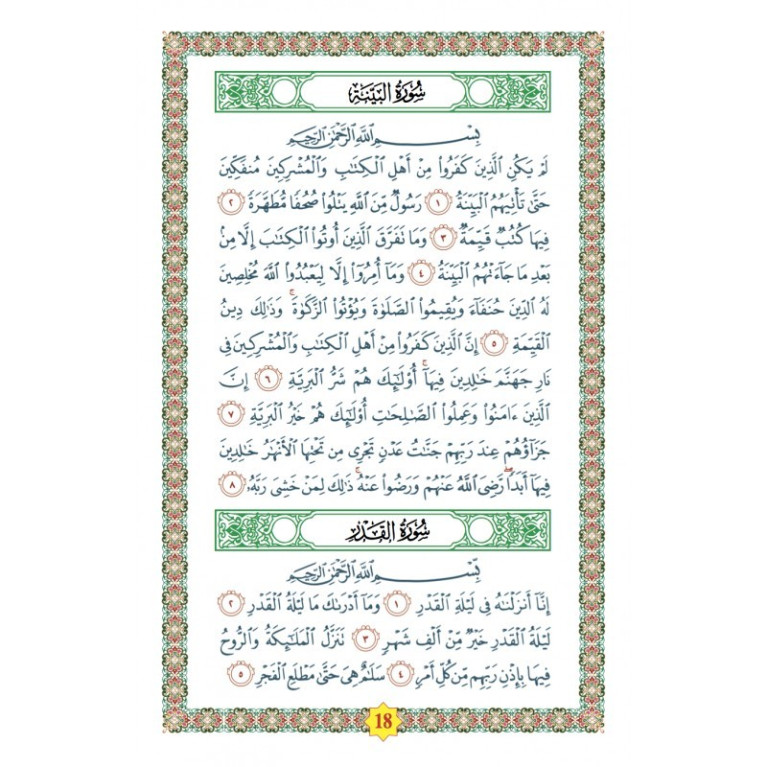 سُورَةُ البَيِّنَةِ
بِسْمِ اللَّهِ الرَّحْمَٰنِ الرَّحِيمِ
لَمْ يَكُنِ ٱلَّذِينَ كَفَرُوا۟ مِنْ أَهْلِ ٱلْكِتَٰبِ وَٱلْمُشْرِكِينَ مُنفَكِّينَ
حَتَّىٰ تَأْتِيَهُمُ ٱلْبَيِّنَةُ ١ رَسُولٌ مِّنَ ٱللَّهِ يَتْلُوا۟ صُحُفًا مُّطَهَّرَةً ٢
فِيهَا كُتُبٌ قَيِّمَةٌ ٣ وَمَا تَفَرَّقَ ٱلَّذِينَ أُوتُوا۟ ٱلْكِتَٰبَ إِلَّا مِنۢ
بَعْدِ مَا جَآءَتْهُمُ ٱلْبَيِّنَةُ ٤ وَمَآ أُمِرُوٓا۟ إِلَّا لِيَعْبُدُوا۟ ٱللَّهَ مُخْلِصِينَ
لَهُ ٱلدِّينَ حُنَفَآءَ وَيُقِيمُوا۟ ٱلصَّلَوٰةَ وَيُؤْتُوا۟ ٱلزَّكَوٰةَ ۚ وَذَٰلِكَ دِينُ
ٱلْقَيِّمَةِ ٥ إِنَّ ٱلَّذِينَ كَفَرُوا۟ مِنْ أَهْلِ ٱلْكِتَٰبِ وَٱلْمُشْرِكِينَ فِى
نَارِ جَهَنَّمَ خَٰلِدِينَ فِيهَآ ۚ أُو۟لَٰٓئِكَ هُمْ شَرُّ ٱلْبَرِيَّةِ ٦ إِنَّ
ٱلَّذِينَ ءَامَنُوا۟ وَعَمِلُوا۟ ٱلصَّٰلِحَٰتِ أُو۟لَٰٓئِكَ هُمْ خَيْرُ ٱلْبَرِيَّةِ ٧
جَزَآؤُهُمْ عِندَ رَبِّهِمْ جَنَّٰتُ عَدْنٍ تَجْرِى مِن تَحْتِهَا ٱلْأَنْهَٰرُ خَٰلِدِينَ
فِيهَآ أَبَدًا ۖ رَّضِىَ ٱللَّهُ عَنْهُمْ وَرَضُوا۟ عَنْهُ ۚ ذَٰلِكَ لِمَنْ خَشِىَ رَبَّهُۥ ٨
سُورَةُ القَدْرِ
بِسْمِ اللَّهِ الرَّحْمَٰنِ الرَّحِيمِ
إِنَّآ أَنزَلْنَٰهُ فِى لَيْلَةِ ٱلْقَدْرِ ١ وَمَآ أَدْرَىٰكَ مَا لَيْلَةُ ٱلْقَدْرِ ٢
لَيْلَةُ ٱلْقَدْرِ خَيْرٌ مِّنْ أَلْفِ شَهْرٍ ٣ تَنَزَّلُ ٱلْمَلَٰٓئِكَةُ وَٱلرُّوحُ
فِيهَا بِإِذْنِ رَبِّهِم مِّن كُلِّ أَمْرٍ ٤ سَلَٰمٌ هِىَ حَتَّىٰ مَطْلَعِ ٱلْفَجْرِ ٥
18